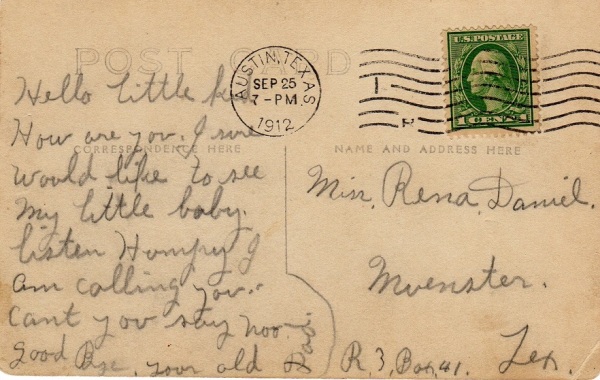 POST CARD
AUSTIN, TEXAS
SEP 25
7-PM
1912
U.S. POSTAGE
1 CENT 1
CORRESPONDENCE HERE
NAME AND ADDRESS HERE
Hello little kid
How are you. I sure
would like to see
my little baby.
listen Humpy I
am calling you.
cant you say hoo.
Good Bye, your old Dad.
Miss, Rena, Daniel.
Muenster.
R. 3, Box, 41. Tex.